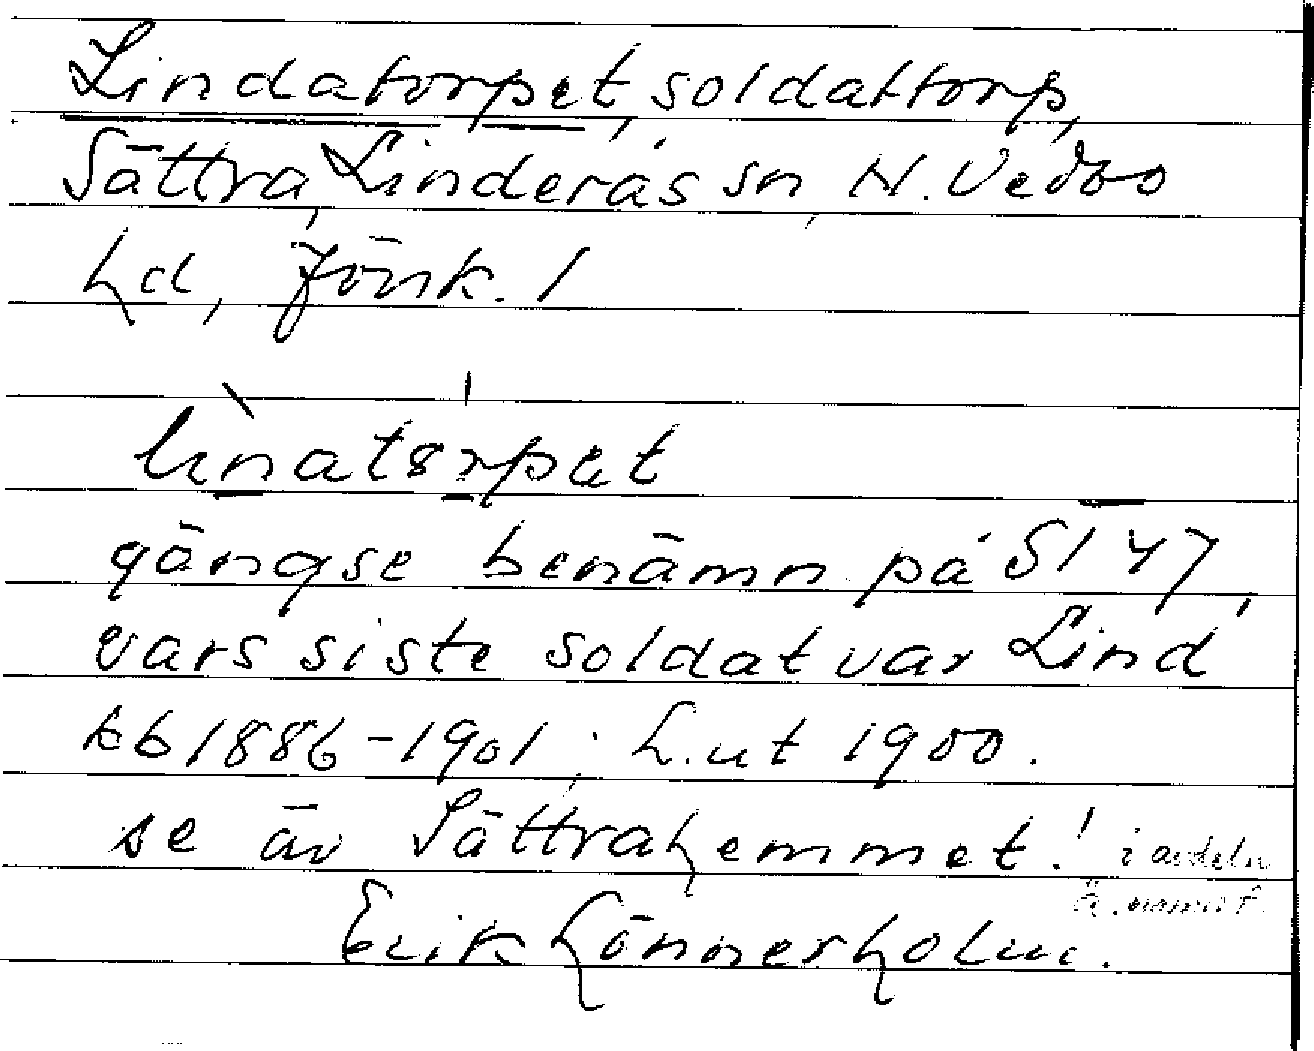 Lindatorpet, soldattorp,
Sättra, Linderås sn, N. Vedbo
hd, Jönk. l
linatorpet
gängse benämn. på Sl 47,
vars siste soldat var Lind
kb 1886-1901; h.ut 1900.
se äv Sättrahemmet! i avdeln
Erik Lönnerholm.